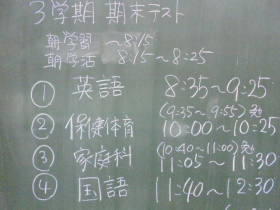 3学期 期末テスト
朝学習 〜8:15
朝学活 8:15〜8:25
① 英語 8:35〜9:25
(9:35〜9:55)
② 保健体育 10:00〜10:25
(10:40〜11:00)
③ 家庭科 11:05〜11:30
④ 国語 11:40〜12:30